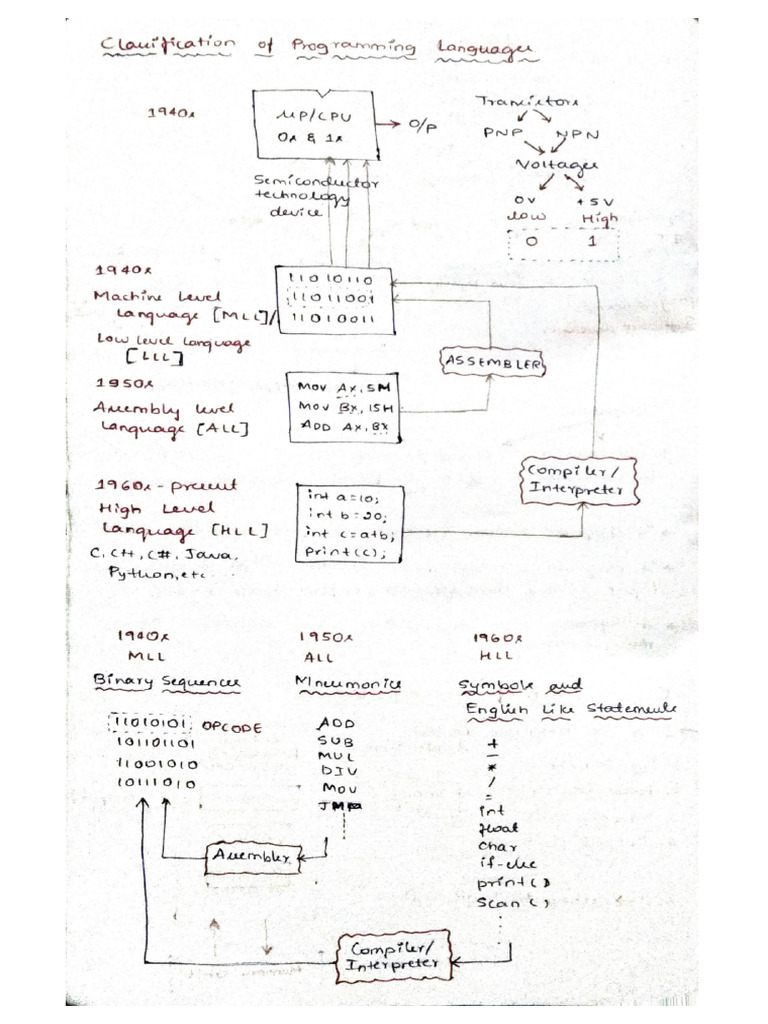 Classification of Programming Languages
1940s
MP/CPU
0s & 1s
O/P
Transistors
PNP NPN
Voltages
0V +5V
Low High
0 1
Semiconductor
technology
device
1940s
Machine Level
Language [MLL]/
Low level Language
[LLL]
11010110
11011001
11010011
ASSEMBLER
1950s
Assembly level
Language [ALL]
MOV AX, 5H
MOV BX, 15H
ADD AX, BX
1960s - present
High Level
Language [HLL]
C, C++, C#, Java,
Python, etc...
int a=10;
int b=20;
int c=a+b;
print(c);
Compiler/
Interpreter
1940s
MLL
Binary Sequences
11010101 OPCODE
101101101
11001010
10111010
1950s
ALL
Mneumonics
ADD
SUB
MUL
DIV
MOV
JMP
Assembler
1960s
HLL
Symbols and
English Like Statements
+
-
*
/
=
int
float
char
if-else
print()
scan()
Compiler/
Interpreter